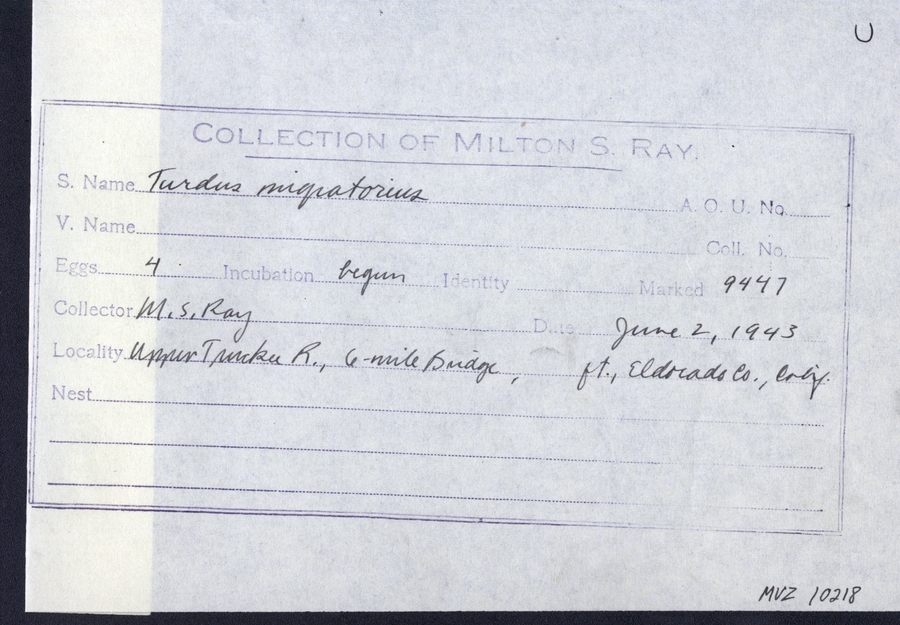 U
COLLECTION OF MILTON S. RAY.
S. Name Turdus migratorius A. O. U. No.
V. Name Coll. No.
Eggs 4 Incubation begun Identity Marked 9447
Collector M. S. Ray Date June 2, 1943
Locality Upper Truckee R., 6-mile Bridge, ft., Eldorado Co., Calif.
Nest
MVZ 10218